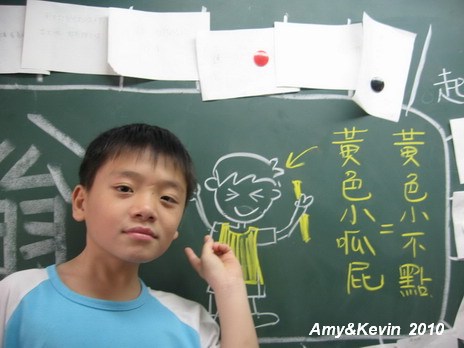 起
黃色小不點
=
黃色小呱屁
Amy&Kevin 2010